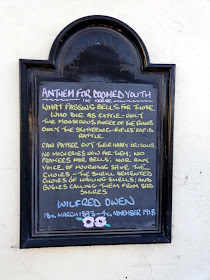 ANTHEM FOR DOOMED YOUTH
WHAT PASSING BELLS FOR THOSE
WHO DIE AS CATTLE - ONLY
THE MONSTROUS ANGER OF THE GUNS
ONLY THE STUTTERING RIFLES' RAPID
RATTLE
CAN PATTER OUT THEIR HASTY ORISONS.
NO MOCKERIES NOW FOR THEM; NO
PRAYERS NOR BELLS; NOR ANY
VOICE OF MOURNING SAVE THE
CHOIRS - THE SHRILL DEMENTED
CHOIRS OF WAILING SHELLS; AND
BUGLES CALLING THEM FROM SAD
SHIRES
WILFRED OWEN
18th MARCH 1893 - 4th NOVEMBER 1918